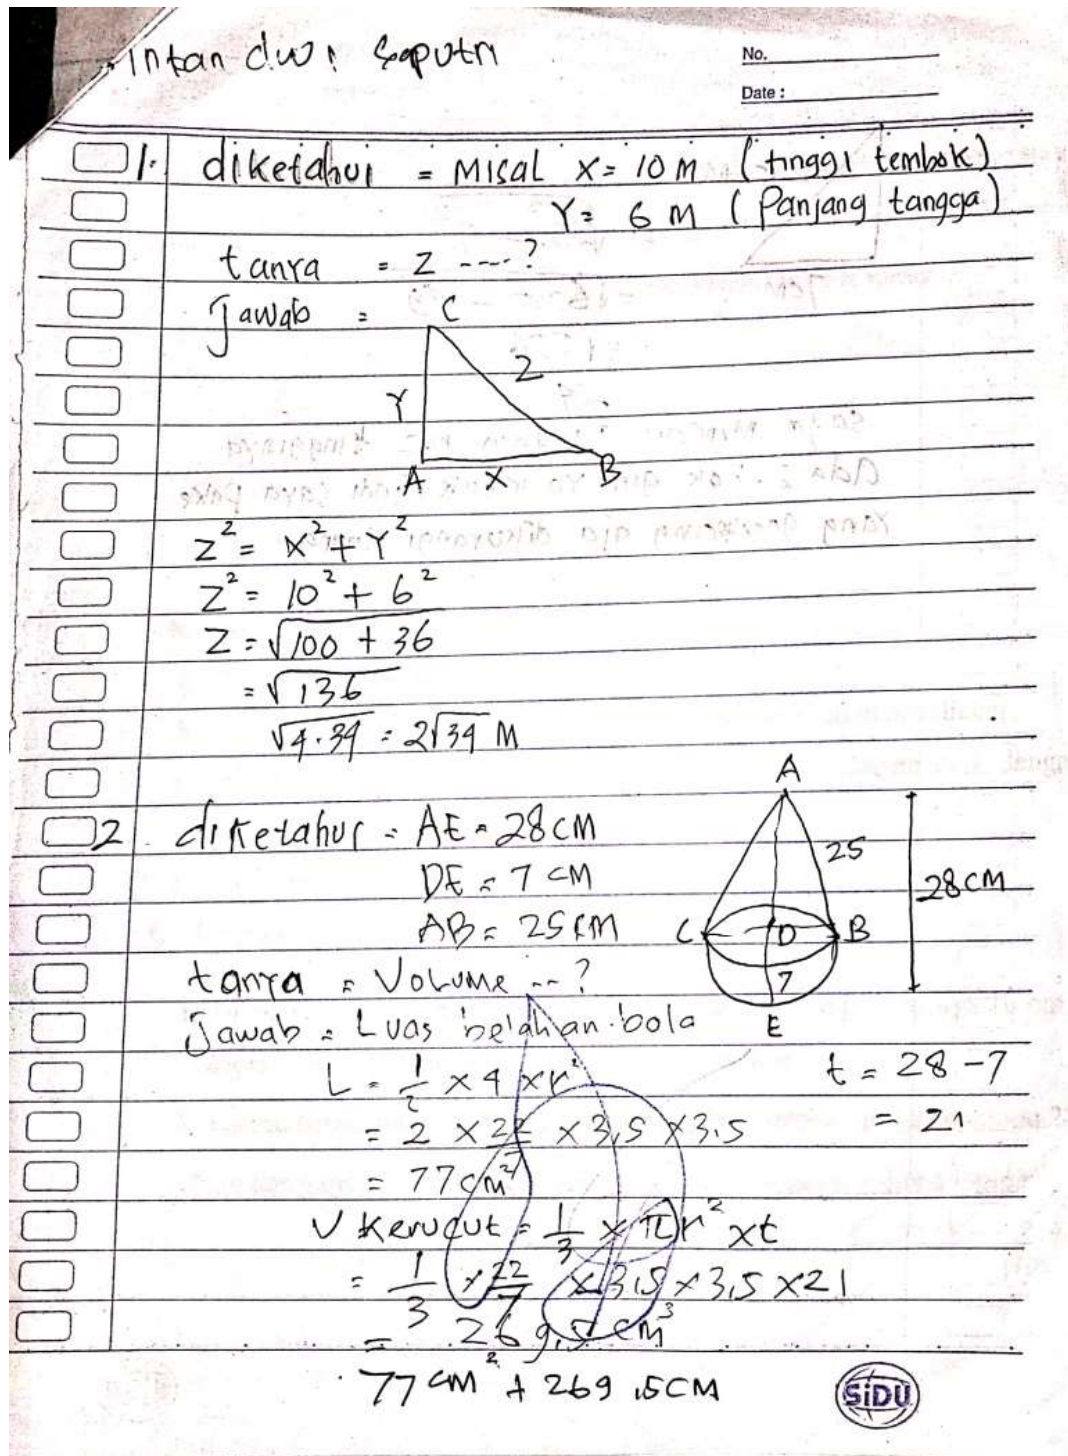 Intan dwi Saputri
No.
Date :
1. diketahui = Misal X = 10 m (tinggi tembok)
Y = 6 M (Panjang tangga)
tanya = Z ----?
Jawab =
C
Z
Y
A X B
Z² = X² + Y²
Z² = 10² + 6²
Z = √100 + 36
= √136
√4.34 = 2√34 M
2. diketahui = AE = 28 CM
DE = 7 CM
AB = 25 CM
A
25
28 CM
C D B
7
E
tanya = Volume --?
Jawab = Luas belahan bola
L = 1/2 × 4 × r²
= 2 × 22/7 × 3,5 × 3,5
= 77 cm²
t = 28 - 7
= 21
V Kerucut = 1/3 × π r² × t
= 1/3 × 22/7 × 3,5 × 3,5 × 21
= 269,5 cm³
77 cm² + 269,5 CM
SiDU